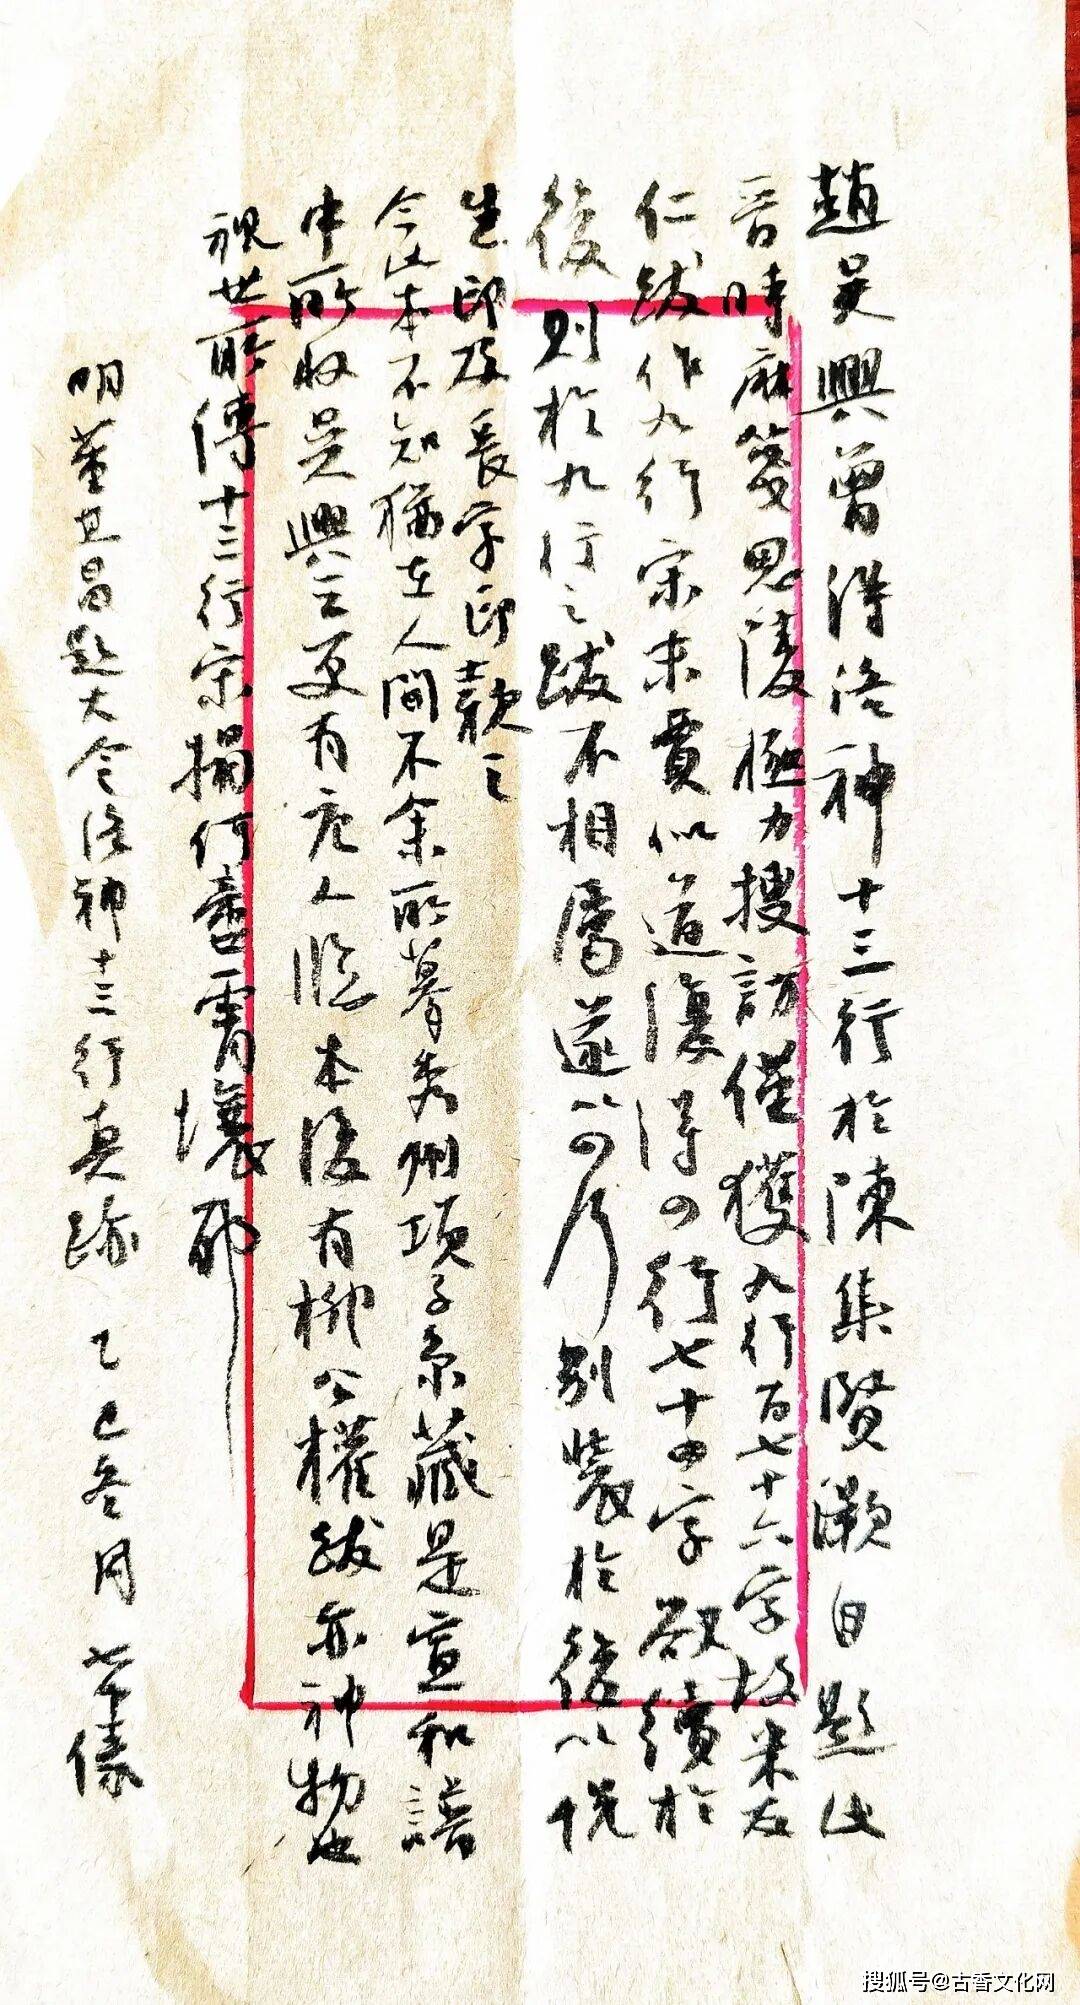 趙吳興曾得洛神十三行於陳集賢灝自題此
晉時麻箋思陵極力搜訪僅獲九行百七十六字故米友
仁跋作九行宋末賈似道復得四行七十四字欲續於
後則於九行之跋不相屬遂以四行別裝於後以悅
生印及長字印款之
今此本不知猶在人間不余所摹秀州項子京藏是宣和譜
中所收吳興云更有唐人臨本後有柳公權跋亦神物也
視世所傳十三行宋搨何啻霄壤耶
明董其昌題大令洛神十三行真跡 乙巳冬月
搜狐号@古香文化网